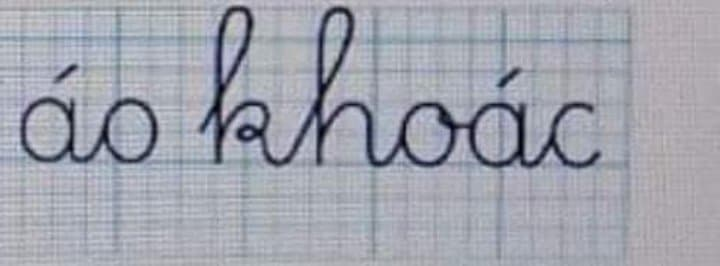 áo khoác